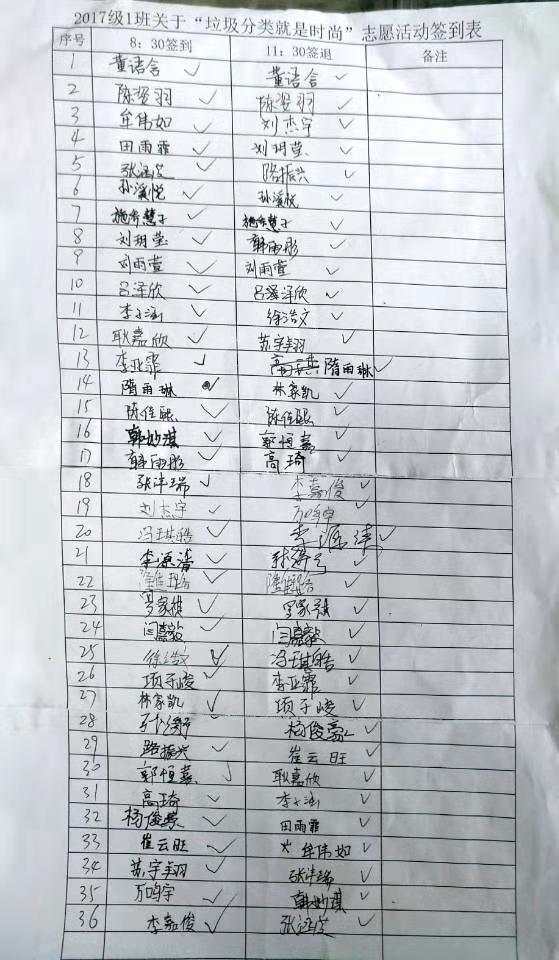 2017级1班关于“垃圾分类就是时尚”志愿活动签到表
序号 8：30签到 11：30签退 备注
1 董语含 ✓ 董语含 ✓
2 陈姿羽 ✓ 陈姿羽 ✓
3 牟伟如 ✓ 刘杰宇 ✓
4 田雨霏 ✓ 刘玥莹 ✓
5 ✓ 路振兴 ✓
6 孙溪悦 ✓ 孙溪悦 ✓
7 ✓ ✓
8 刘玥莹 ✓ 韩雨彤 ✓
9 刘雨萱 ✓ 刘雨萱 ✓
10 吕泽欣 ✓ 吕泽欣 ✓
11 李子涵 ✓ 徐浩文 ✓
12 耿嘉欣 ✓ 苏宇翔 ✓
13 李亚霏 ✓ 隋雨琳 ✓
14 隋雨琳 ✓ 林家凯 ✓
15 陈佳熙 ✓ 陈佳熙 ✓
16 韩妙淇 ✓ 郭恒嘉 ✓
17 韩雨彤 ✓ 高琦 ✓
18 ✓ 李嘉俊 ✓
19 刘杰宇 ✓ 万鸣宇 ✓
20 冯琪皓 ✓ 李源清 ✓
21 李源清 ✓ ✓
22 ✓ ✓
23 罗家祺 ✓ 罗家祺 ✓
24 闫嘉毅 ✓ 闫嘉毅 ✓
25 徐浩文 ✓ 冯琪皓 ✓
26 项子峻 ✓ 李亚霏 ✓
27 林家凯 ✓ 项子峻 ✓
28 ✓ 杨俊豪 ✓
29 路振兴 ✓ 崔云旺 ✓
30 郭恒嘉 ✓ 耿嘉欣 ✓
31 高琦 ✓ 李子涵 ✓
32 杨俊豪 ✓ 田雨霏 ✓
33 崔云旺 ✓ 牟伟如 ✓
34 苏宇翔 ✓ ✓
35 万鸣宇 ✓ 韩妙淇 ✓
36 李嘉俊 ✓ ✓